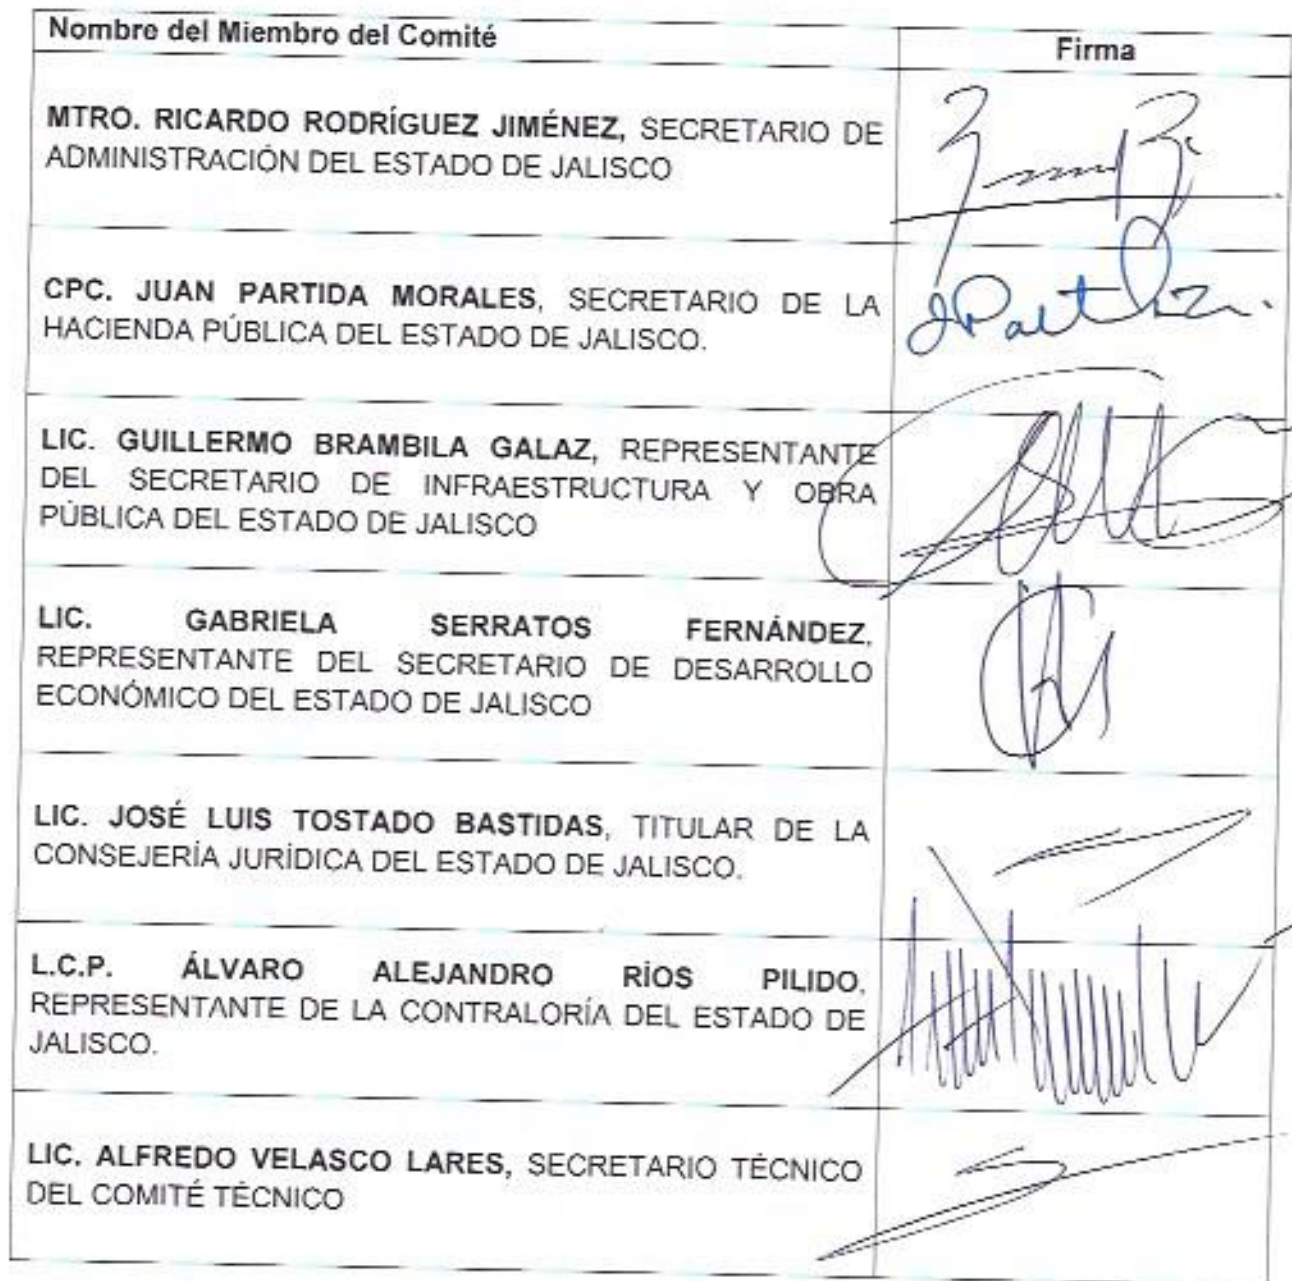 Nombre del Miembro del Comité
Firma
MTRO. RICARDO RODRÍGUEZ JIMÉNEZ, SECRETARIO DE
ADMINISTRACIÓN DEL ESTADO DE JALISCO
CPC. JUAN PARTIDA MORALES, SECRETARIO DE LA
HACIENDA PÚBLICA DEL ESTADO DE JALISCO.
JPartida
LIC. GUILLERMO BRAMBILA GALAZ, REPRESENTANTE
DEL SECRETARIO DE INFRAESTRUCTURA Y OBRA
PÚBLICA DEL ESTADO DE JALISCO
LIC. GABRIELA SERRATOS FERNÁNDEZ,
REPRESENTANTE DEL SECRETARIO DE DESARROLLO
ECONÓMICO DEL ESTADO DE JALISCO
LIC. JOSÉ LUIS TOSTADO BASTIDAS, TITULAR DE LA
CONSEJERÍA JURÍDICA DEL ESTADO DE JALISCO.
L.C.P. ÁLVARO ALEJANDRO RÍOS PILIDO,
REPRESENTANTE DE LA CONTRALORÍA DEL ESTADO DE
JALISCO.
LIC. ALFREDO VELASCO LARES, SECRETARIO TÉCNICO
DEL COMITÉ TÉCNICO